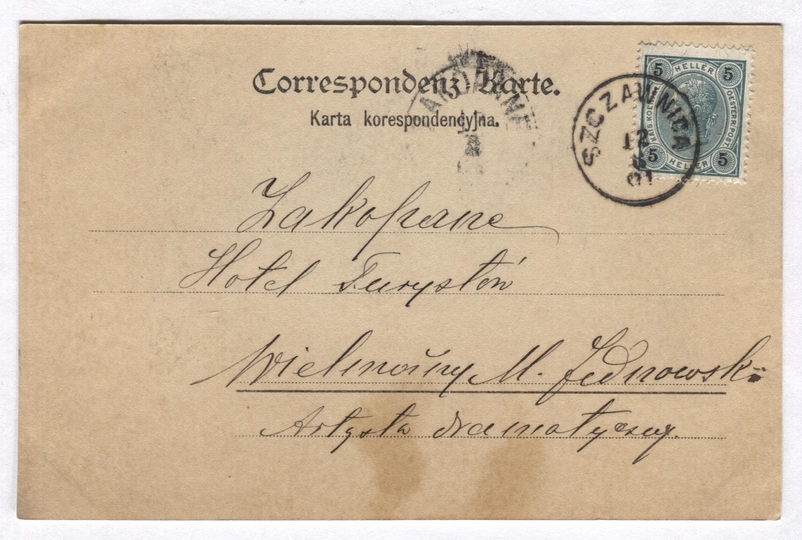 Correspondenz-Karte.
Karta korespondencyjna.
ZAKOPANE
5 HELLER 5
OESTERR. POST.
5 HELLER 5
SZCZAWNICA
12
8
01
Zakopane
Hotel Turystów
Wielmożny M. Jednowski
Artysta dramatyczny.